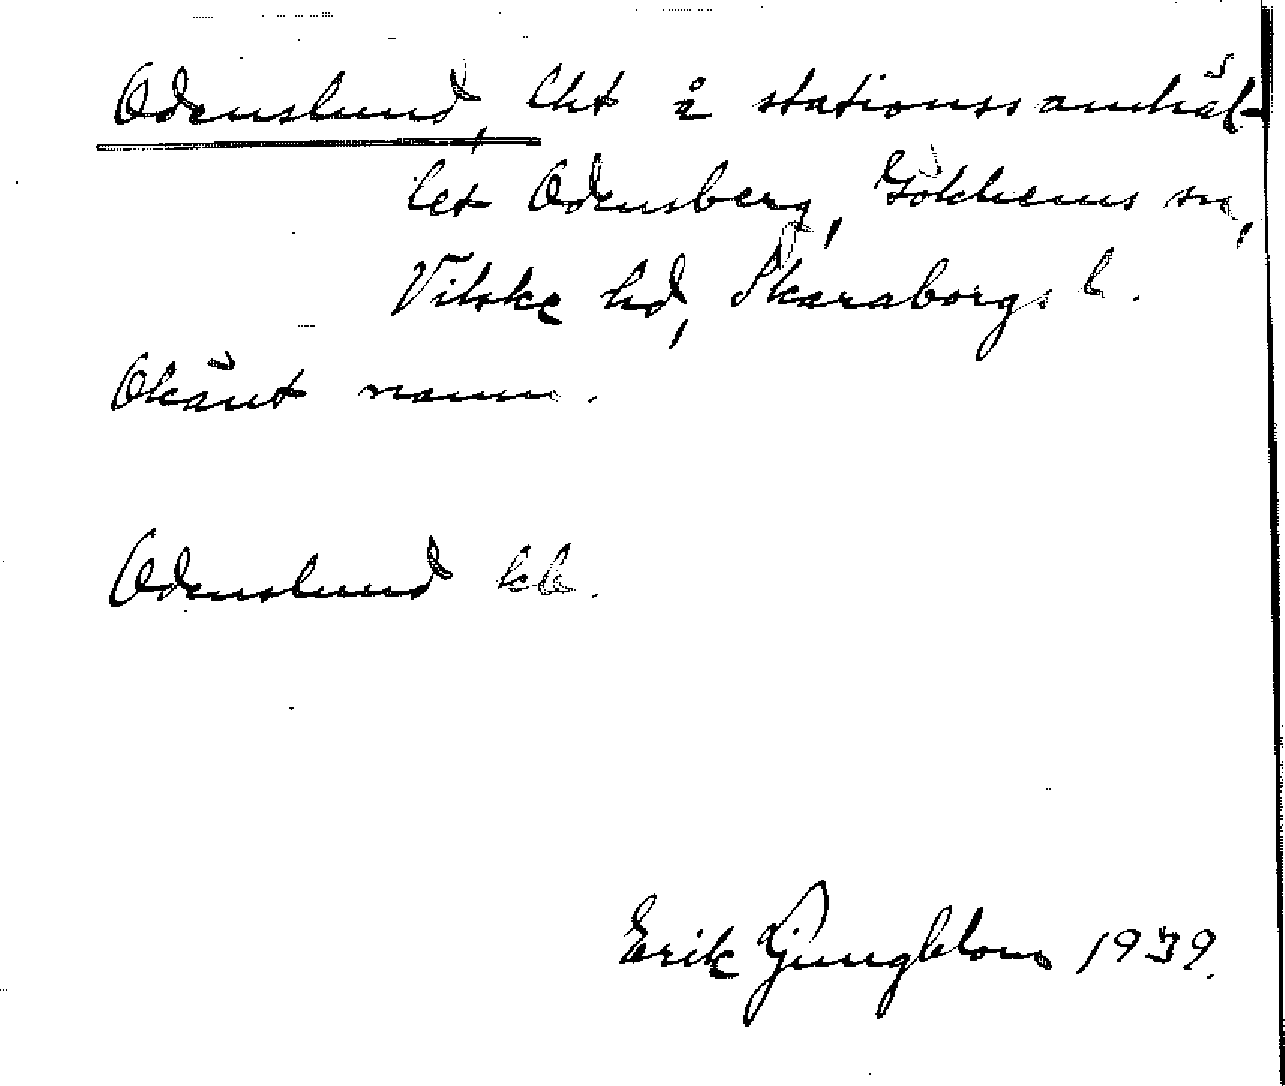 Odenslund, lht i stationssamhäl-
let Odensberg, Gökhems sn,
Vilske hd, Skaraborgs l.
Okänt namn.
Odenslund kb.
Erik Ljungblom 1939.